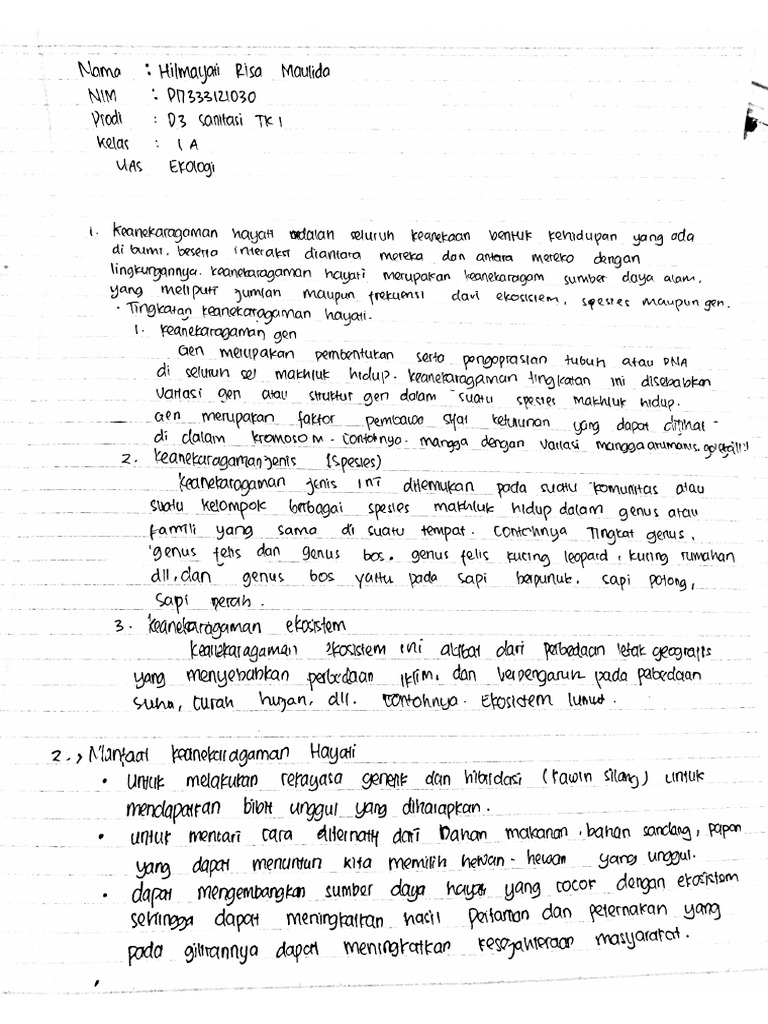 Nama : Hilmayati Risa Maulida
NIM : P17333121030
Prodi : D3 Sanitasi TK 1
Kelas : 1 A
UAS Ekologi
1. Keanekaragaman hayati adalah seluruh keanekaan bentuk kehidupan yang ada
di bumi, beserta interaksi diantara mereka dan antara mereka dengan
lingkungannya. Keanekaragaman hayati merupakan keanekaragam sumber daya alam,
yang meliputi jumlah maupun frekuensi dari ekosistem, spesies maupun gen.
• Tingkatan keanekaragaman hayati.
1. Keanekaragaman gen
Gen merupakan pembentukan serta pengoprasian tubuh atau DNA
di seluruh sel makhluk hidup. Keanekaragaman tingkatan ini disebabkan
variasi gen atau struktur gen dalam suatu spesies makhluk hidup.
Gen merupakan faktor pembawa sifat keturunan yang dapat dijihat
di dalam kromosom. Contohnya. mangga dengan variasi mangga arumanis,
2. Keanekaragaman jenis (Spesies)
Keanekaragaman jenis ini ditemukan pada suatu komunitas atau
suatu kelompok berbagai spesies makhluk hidup dalam genus atau
famili yang sama di suatu tempat. Contohnya Tingkat genus,
genus felis dan genus bos. genus felis kucing leopard, kucing rumahan
dll, dan genus bos yaitu pada sapi berpunuk, sapi potong,
sapi perah.
3. Keanekaragaman ekosistem
Keanekaragaman ekosistem ini akibat dari perbedaan letak geografis
yang menyebabkan perbedaan iklim, dan berpengaruh pada pebedaan
suhu, curah hujan, dll. Contohnya. Ekosistem lumut.
2., Manfaat Keanekaragaman Hayati
• Untuk melakukan rekayasa genetik dan hibridasi (kawin silang) untuk
mendapatkan bibit unggul yang diharapkan.
• untuk mencari cara alternatif dari bahan makanan, bahan sandang, papan
yang dapat menuntun kita memilih hewan-hewan yang unggul.
• dapat mengembangkan sumber daya hayati yang cocok dengan ekosistem
sehingga dapat meningkatkan hasil pertanian dan peternakan yang
pada gilirannya dapat meningkatkan kesejahteraan masyarakat.